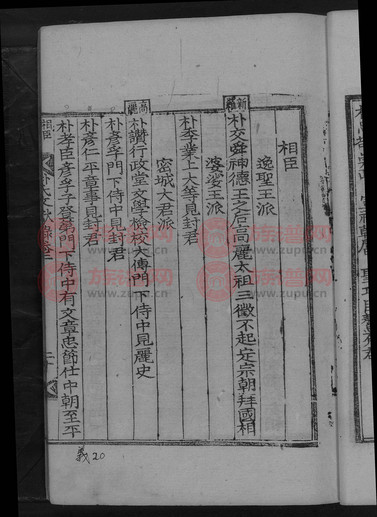 相臣
逸聖王派
新羅
朴交舜神德王之后高麗太祖三徵不起定宗朝拜國相
婆娑王派
朴季業上大等見封君
密城大君派
高麗
朴讚行政堂文學檢校太傅門下侍中見麗史
朴彦孚門下侍中見封君
朴彦仁平章事見封君
朴孝臣彦孚子登第門下侍中有文章忠節仕中朝至平
相臣
朴氏文獻錄卷三
義20
族譜网
www.zupu.cn